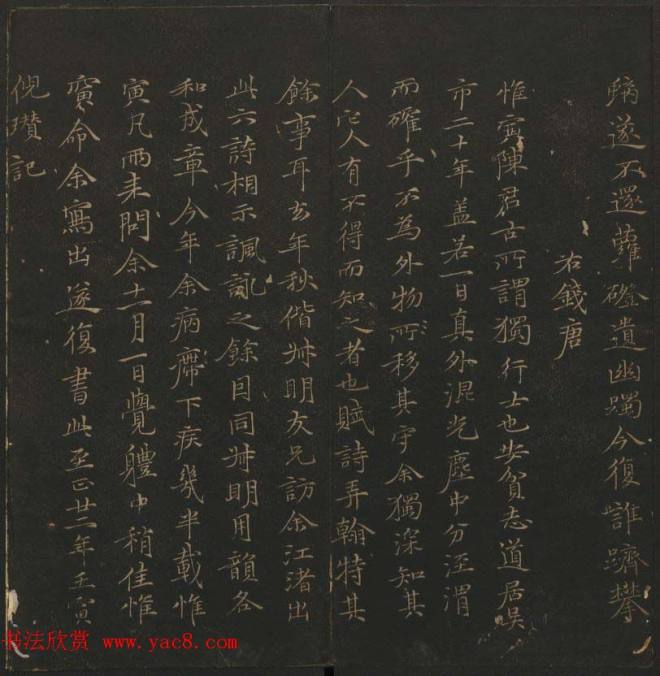 遂不還蘿磴遺幽躅今復誰躋攀
右錢唐
惟寅陳君古所謂獨行士也安貧志道居吳
市二十年盖若一日真外混光塵中分涇渭
而確乎不為外物所移其守余獨深知其
人它人有不得而知之者也賦詩弄翰特其
餘事耳去年秋偕叔明友兄訪余江渚出
此六詩相示諷詠之餘因同叔明用韻各
和成章今年余病㿃下疾幾半載惟
寅凡兩来問余十一月一日覺體中稍佳惟
寅命余寫出遂復書此至正廿二年壬寅
倪瓚記
书法欣赏 www.yac8.com